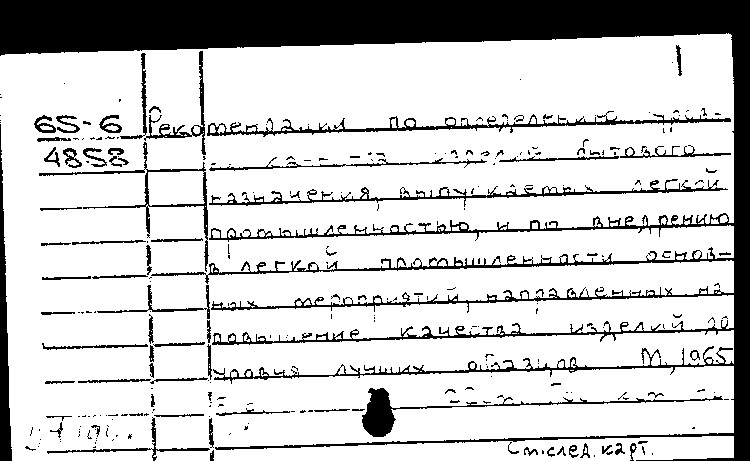 65-6 Рекомендации по определению уров-
4858 качества изделий бытового
назначения, выпускаемых легкой
промышленностью, и по внедрению
в легкой промышленности основ-
ных мероприятий, направленных на
повышение качества изделий до
уровня лучших образцов. М., 1965.
См.след.карт.